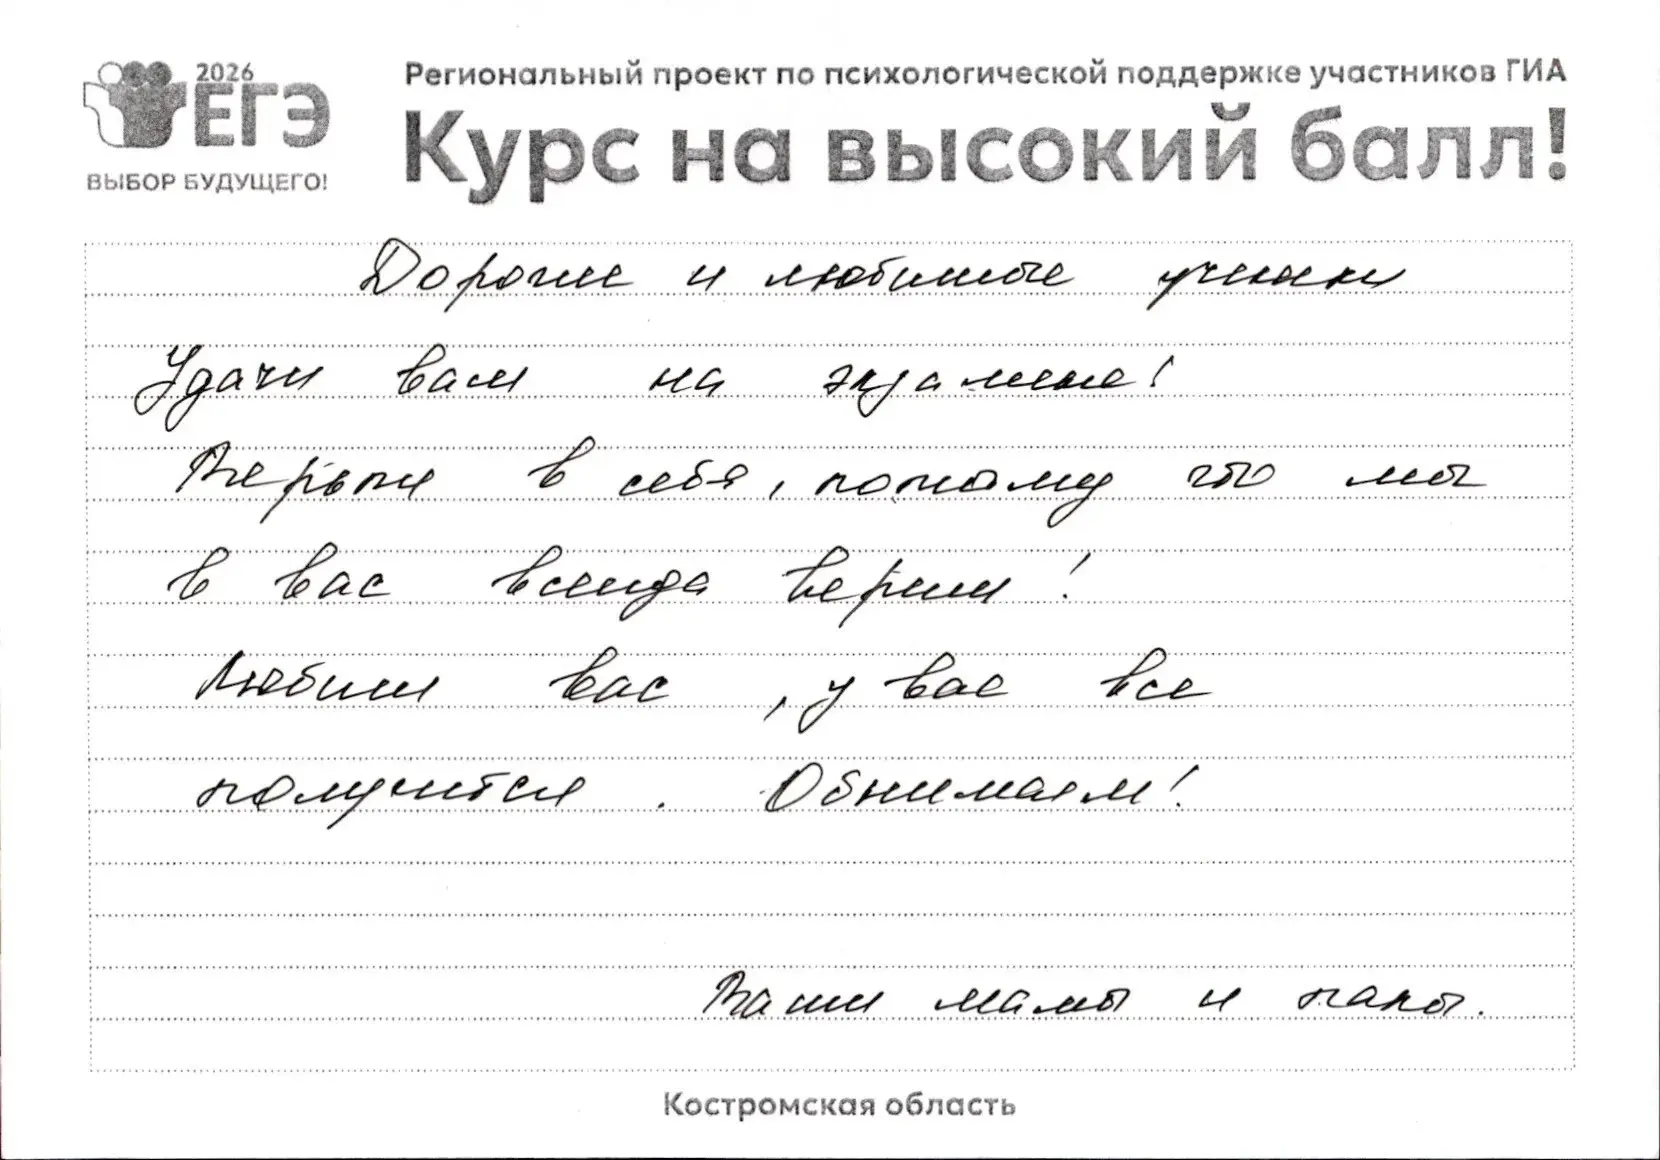 2026
ЕГЭ
ВЫБОР БУДУЩЕГО!
Региональный проект по психологической поддержке участников ГИА
Курс на высокий балл!
Дорогие и любимые ученики
Удачи вам на экзамене!
Верьте в себя, потому что мы
в вас всегда верим!
Любим вас, у вас все
получится. Обнимаем!
Ваши мамы и папы.
Костромская область